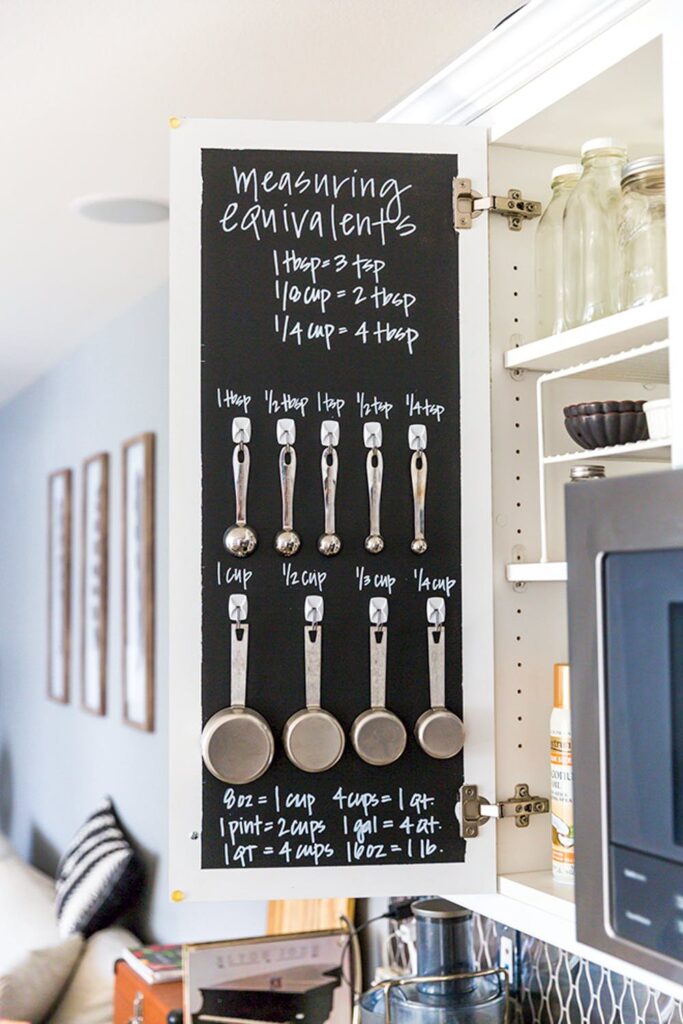 measuring
equivalents
1 tbsp = 3 tsp
1/8 cup = 2 tbsp
1/4 cup = 4 tbsp
1 tbsp 1/2 tbsp 1 tsp 1/2 tsp 1/4 tsp
1 cup 1/2 cup 1/3 cup 1/4 cup
8oz = 1 cup 4 cups = 1 qt.
1 pint = 2 cups 1 gal = 4 qt.
1 qt = 4 cups 16oz = 1 lb.
OIL